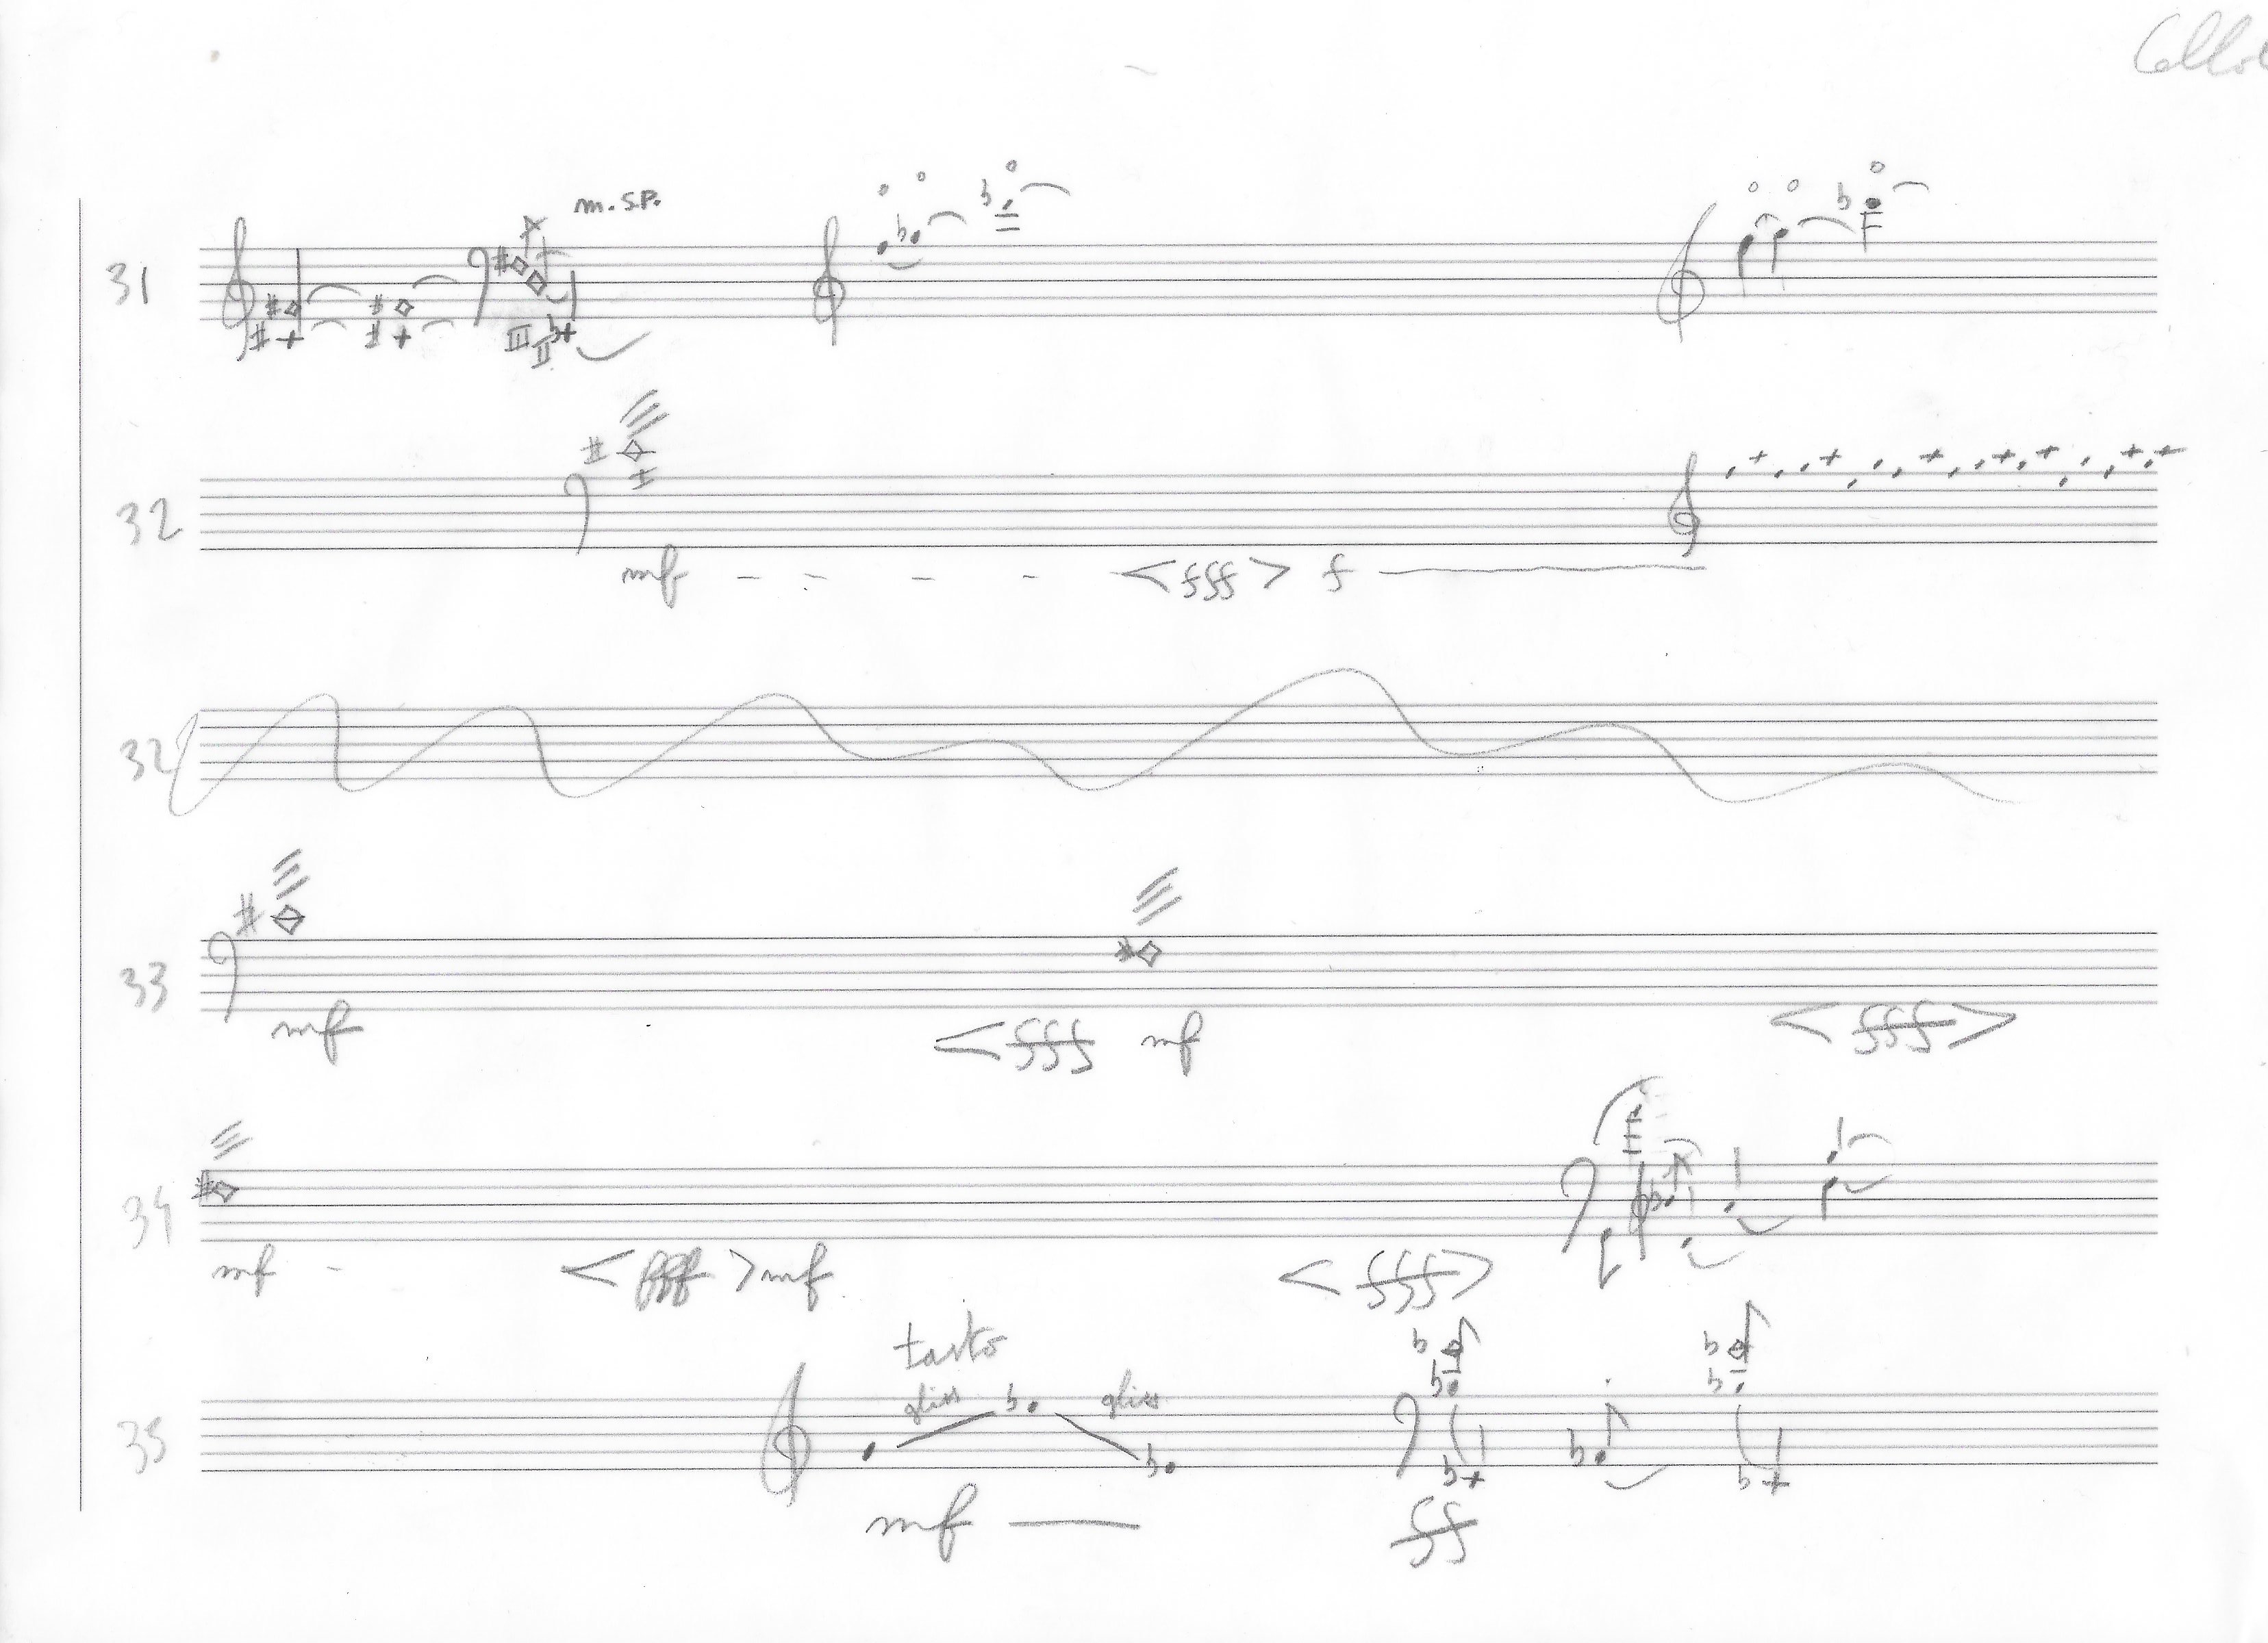 m. s.p.
31
III
II
32
mf < fff > f
32
33
mf < fff mf < fff >
34
mf < fff > mf < fff >
tasto
gliss gliss
35
mf ff